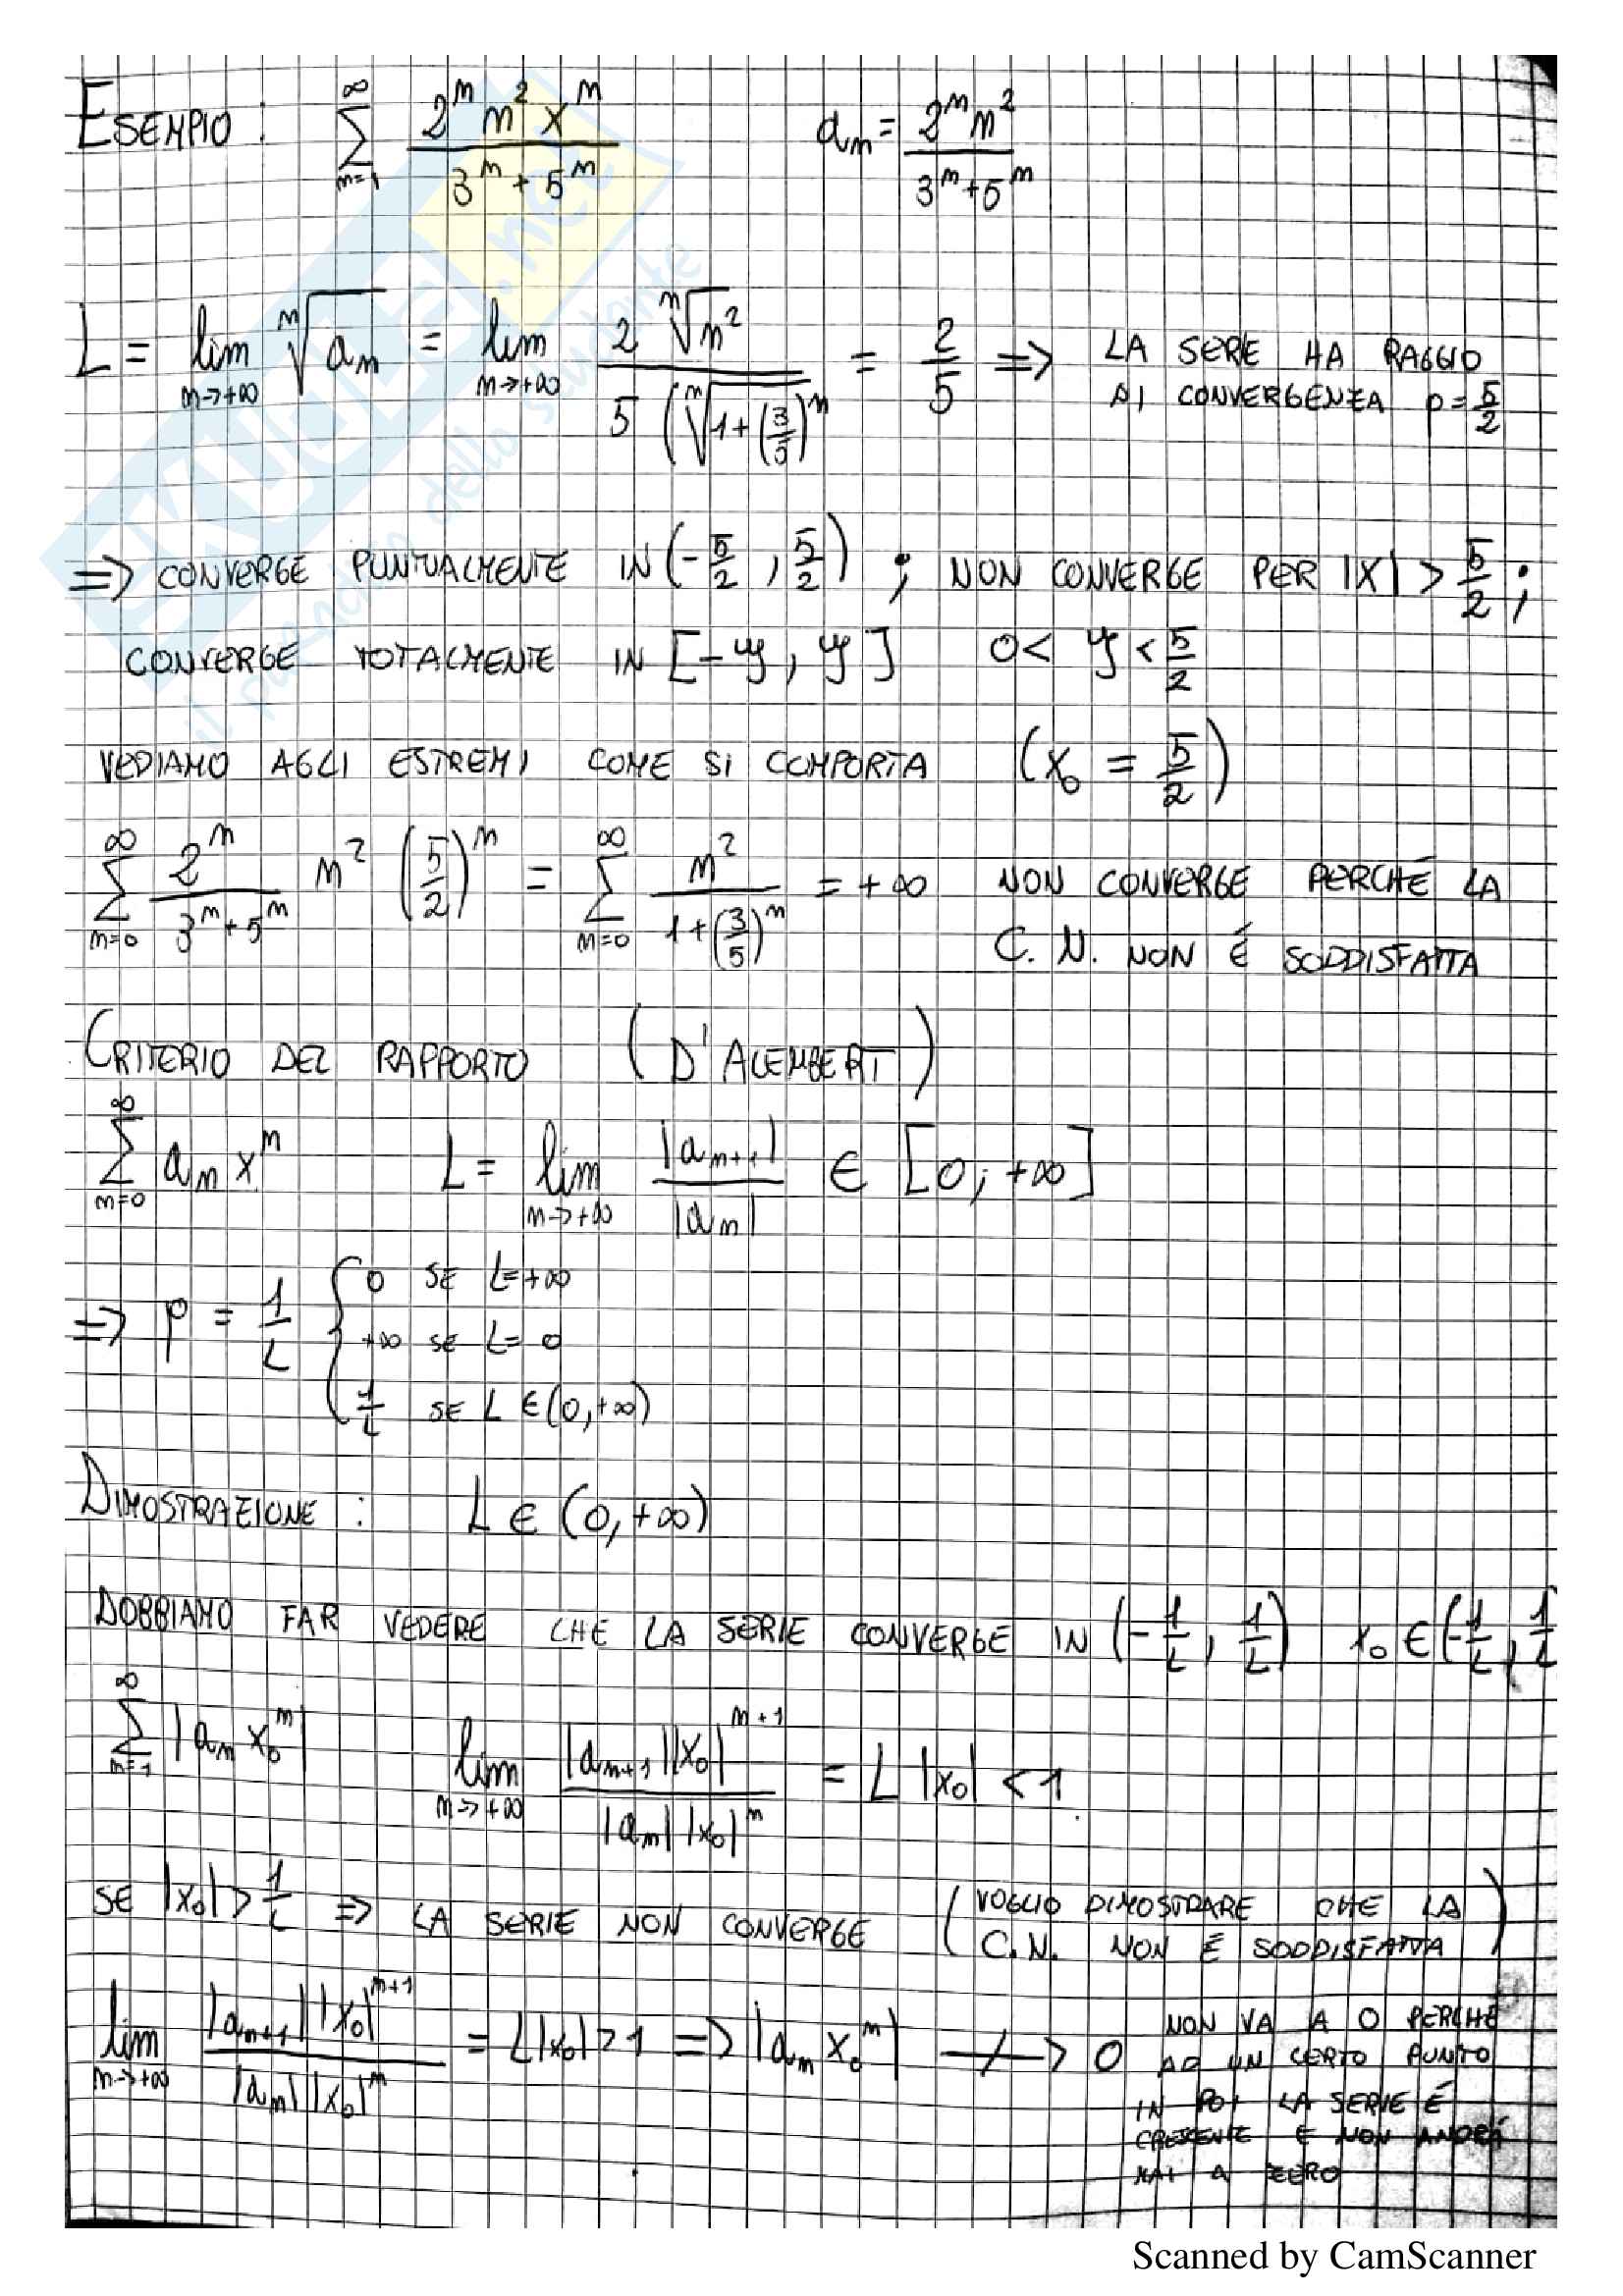 ESEMPIO: ∑_{n=1}^{∞} \frac{2^n n^2 x^n}{3^n + 5^n}   a_n = \frac{2^n n^2}{3^n + 5^n}
L = lim_{n→+∞} \sqrt[n]{a_n} = lim_{n→+∞} \frac{2 \sqrt[n]{n^2}}{5 (\sqrt[n]{1 + (\frac{3}{5})^n}} = \frac{2}{5} ⇒ LA SERIE HA RAGGIO
DI CONVERGENZA ρ = \frac{5}{2}
⇒ CONVERGE PUNTUALMENTE IN (-\frac{5}{2}, \frac{5}{2}) ; NON CONVERGE PER |X| > \frac{5}{2} ;
CONVERGE TOTALMENTE IN [-y, y]   0 < y < \frac{5}{2}
VEDIAMO AGLI ESTREMI COME SI COMPORTA (x_0 = \frac{5}{2})
∑_{n=0}^{∞} \frac{2^n}{3^n + 5^n} n^2 (\frac{5}{2})^n = ∑_{n=0}^{∞} \frac{n^2}{1 + (\frac{3}{5})^n} = +∞   NON CONVERGE PERCHÉ LA
C.N. NON È SODDISFATTA
CRITERIO DEL RAPPORTO (D'ALEMBERT)
∑_{n=0}^{∞} a_n x^n   L = lim_{n→+∞} \frac{|a_{n+1}|}{|a_n|} ∈ [0; +∞]
⇒ ρ = \frac{1}{L} { 0 SE L = +∞
+∞ SE L = 0
\frac{1}{L} SE L ∈ (0, +∞)
DIMOSTRAZIONE: L ∈ (0, +∞)
DOBBIAMO FAR VEDERE CHE LA SERIE CONVERGE IN (-\frac{1}{L}, \frac{1}{L})   x_0 ∈ (-\frac{1}{L}, \frac{1}{L}
∑_{n=1}^{∞} |a_n x_0^n|   lim_{n→+∞} \frac{|a_{n+1}||x_0|^{n+1}}{|a_n||x_0|^n} = L|x_0| < 1.
SE |x_0| > \frac{1}{L} ⇒ LA SERIE NON CONVERGE (VOGLIO DIMOSTRARE CHE LA
C.N. NON È SODDISFATTA)
lim_{n→+∞} \frac{|a_{n+1}||x_0|^{n+1}}{|a_n||x_0|^n} = L|x_0| > 1 ⇒ |a_n x_0^n| ↛ 0   NON VA A 0 PERCHÉ
AD UN CERTO PUNTO
IN POI LA SERIE È
CRESCENTE E NON ANDRÀ
MAI A ZERO
SKUOLA.net
il paradiso dello studente
Scanned by CamScanner